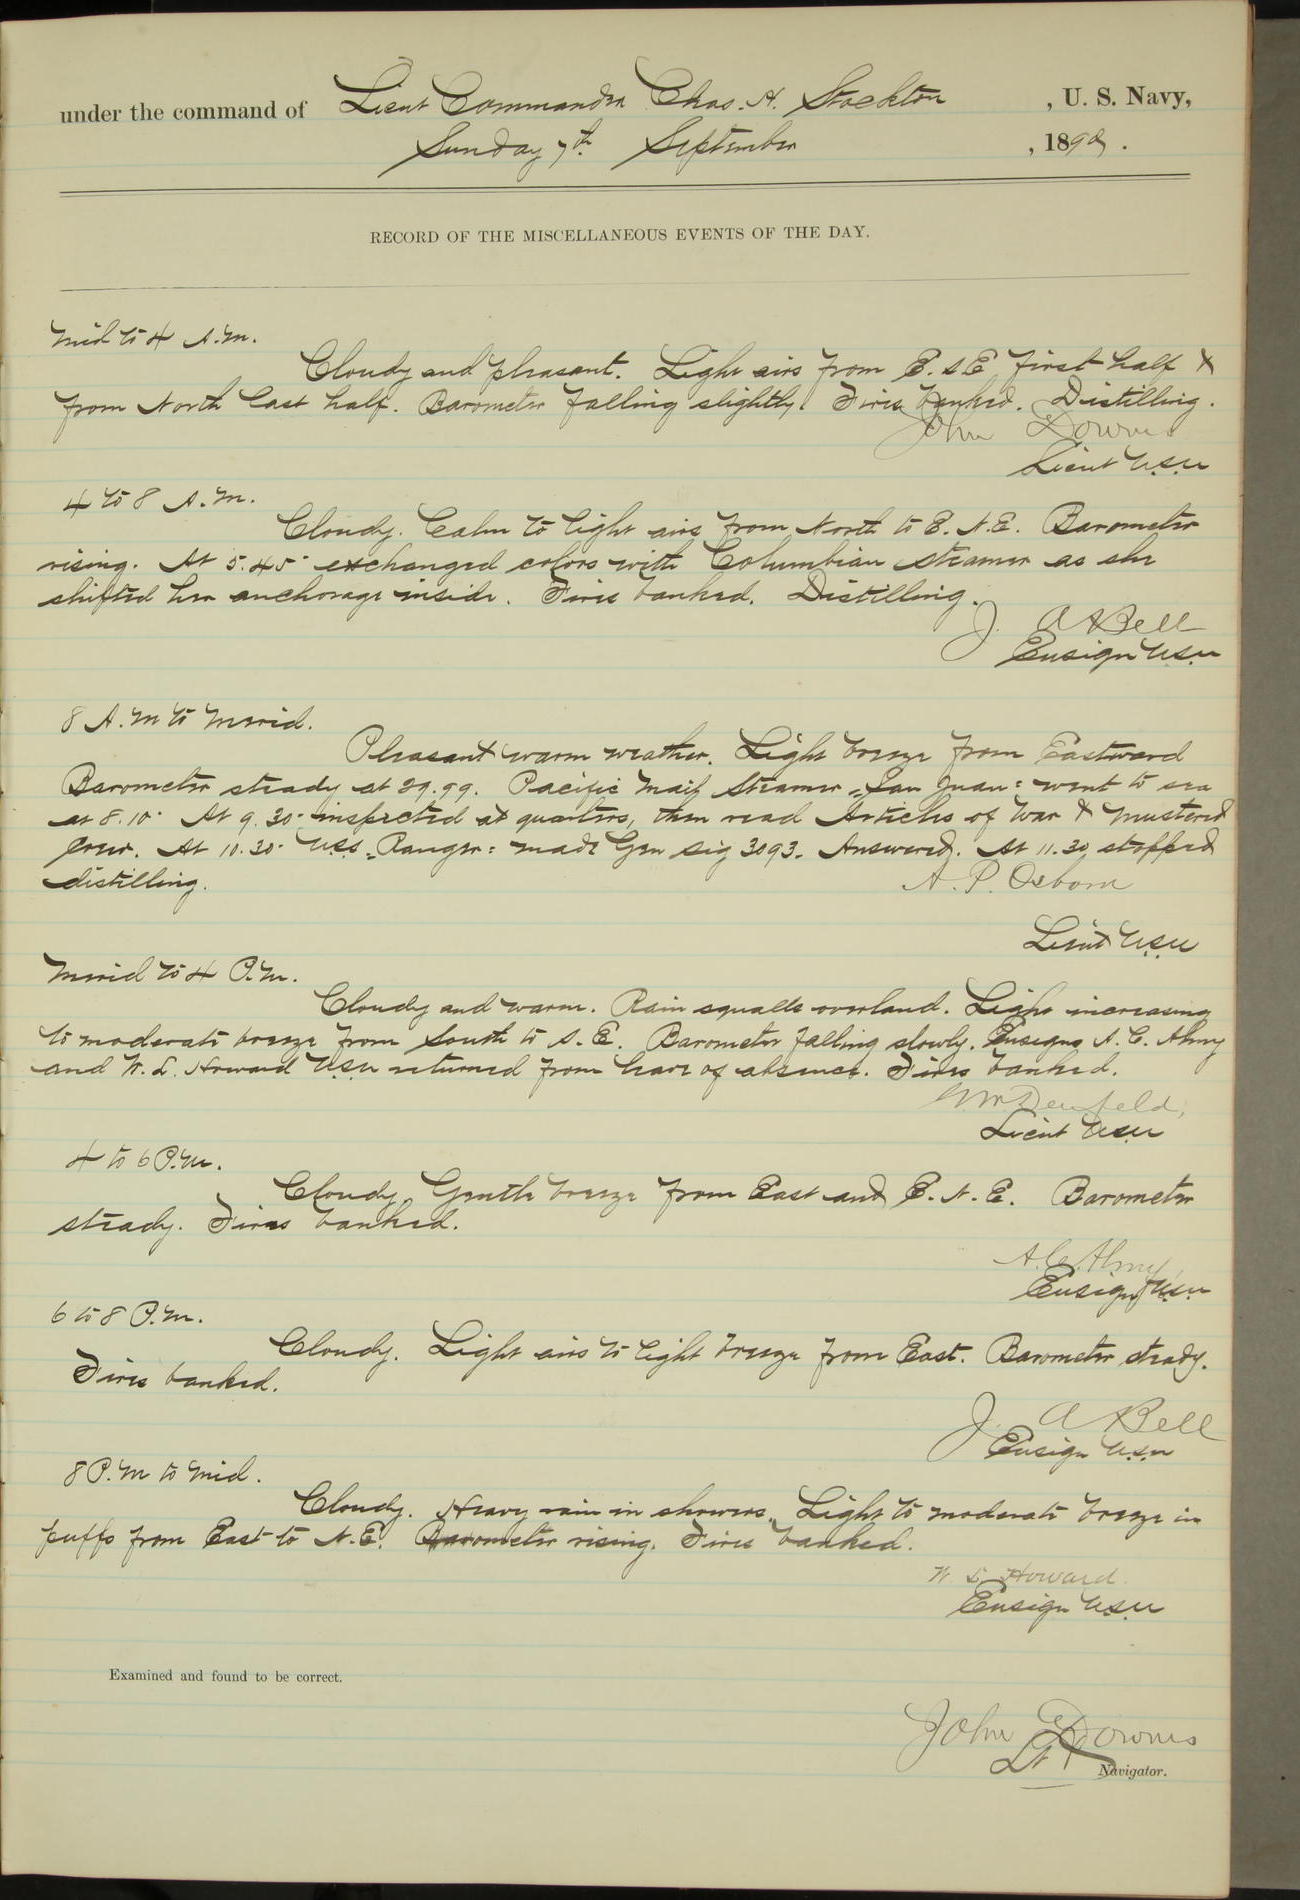 under the command of Lieut Commander Chas. H. Stockton, U. S. Navy,
Sunday 7th September, 1890.
RECORD OF THE MISCELLANEOUS EVENTS OF THE DAY.
Mid to 4 A.M.
Cloudy and pleasant. Light airs from E. S E first half &
from North last half. Barometer falling slightly. Fires banked. Distilling.
John Downes
Lieut U.S.N
4 to 8 A.M.
Cloudy. Calm to light airs from North to E. N.E. Barometer
rising. At 5.45 exchanged colors with Columbian steamer as she
shifted her anchorage inside. Fires banked. Distilling.
J. A Bell
Ensign U.S.N
8 A.M to Merid.
Pleasant warm weather. Light breeze from Eastward
Barometer steady at 29.99. Pacific Mail Steamer "San Juan" went to sea
at 8.10. At 9.30 inspected at quarters, then read Articles of War & mustered
crew. At 10.30 U.S.S. "Ranger" made Gen Sig 3093. Answered. At 11.30 stopped
distilling.
A. P. Osborn
Lieut U.S.N
Merid to 4 P.M.
Cloudy and warm. Rain squalls overland. Light increasing
to moderate breeze from South to S. E. Barometer falling slowly. Ensigns A. C. Almy
and W. L. Howard U.S.N returned from leave of absence. Fires banked.
Denfeld,
Lieut U.S.N
4 to 6 P.M.
Cloudy. Gentle breeze from East and E. N. E. Barometer
steady. Fires banked.
A. C. Almy,
Ensign U.S.N
6 to 8 P.M.
Cloudy. Light airs to light breeze from East. Barometer steady.
Fires banked.
J. A Bell
Ensign U.S.N
8 P.M to Mid.
Cloudy. Heavy rain in showers. Light to moderate breeze in
puffs from East to N.E. Barometer rising. Fires banked.
W. L. Howard.
Ensign U.S.N
Examined and found to be correct.
John Downes
Lt
Navigator.